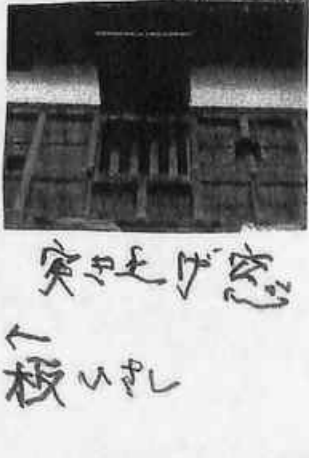 突き上げ窓
←
板ひさし